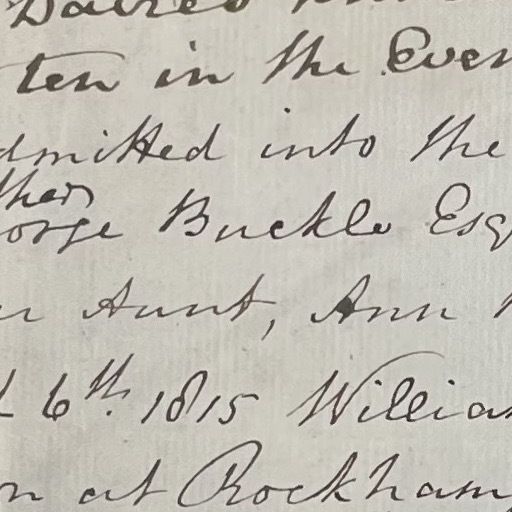 ten in the Even
dmitted into the
ther
orge Buckle Esq
r Aunt, Ann
6th. 1815 William
n at Rockham